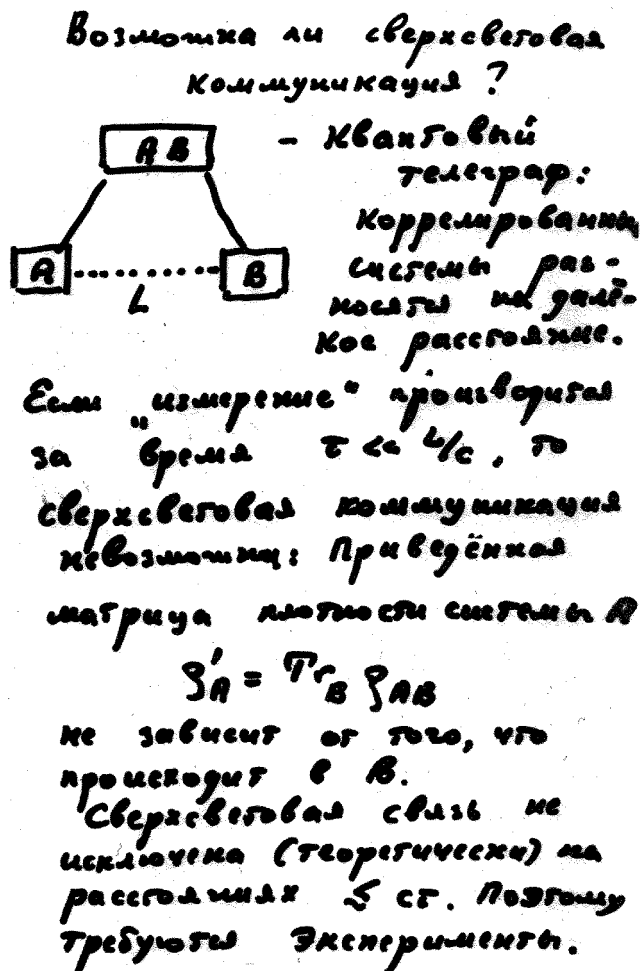 Возможна ли сверхсветовая
коммуникация?
AB
A
B
L
- Квантовый
телеграф:
Коррелированны
системы раз-
носятся на далё-
кое расстояние.
Если „измерение“ производится
за время τ << L/c, то
сверхсветовая коммуникация
невозможна: Приведённая
матрица плотности системы A
ρ'A = TrB ρAB
не зависит от того, что
происходит в B.
Сверхсветовая связь не
исключена (теоретически) на
расстояниях ≲ cτ. Поэтому
требуются эксперименты.